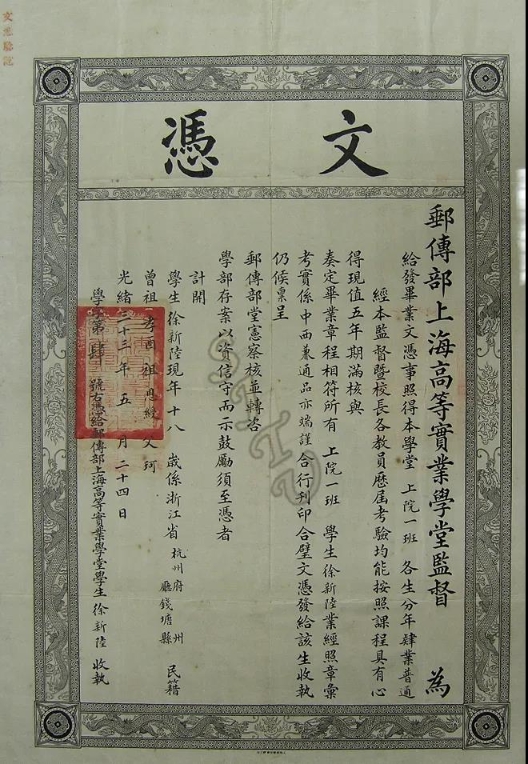 文憑
郵傳部上海高等實業學堂監督 為
給發畢業文憑事照得本學堂 上院一班 各生分年肄業普通
經本監督暨校長各教員歷屆考驗均能按照課程具有心
得現值五年期滿核與
奏定畢業章程相符所有 上院一班 學生徐新陸業經照章彙
考實係中西兼通品亦端謹合行刊印合璧文憑發給該生收執
仍候稟呈
郵傳部堂憲察核並轉咨
學部存案以資信守而示鼓勵須至憑者
計開
學生徐新陸現年十八 歲係浙江省 杭州府 州 廳錢塘縣 民籍
曾祖 考酉 祖 恩綬 父 珂
光緒三十三年五月二十四日
學字第肆 號右憑給郵傳部上海高等實業學堂學生 徐新陸 收執